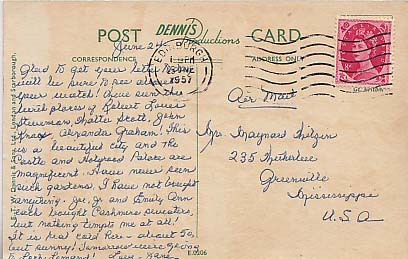 POST DENNIS Productions CARD
CORRESPONDENCE
ADDRESS ONLY
EDINBURGH
1957
June 24
Glad to get your letter
will be sure to see
Have seen the
birth places of Robert Louis
Stevenson, Walter Scott, John
Knox, Alexander Graham! This
is a beautiful city and the
Castle and Holyrood Palace are
magnificent. Have never seen
such gardens. I have not bought
anything. Jr., Jr. and Emily Ann
each bought Cashmere sweaters,
but nothing tempts me at all!
It is real cold here - about 50,
but sunny! Tomorrow we're going
to Loch Lomond! Love -
Air Mail
Mrs. Maynard
235
Greenville
Mississippi
U.S.A
E.T.W. Dennis & Sons Ltd., London and Scarborough.